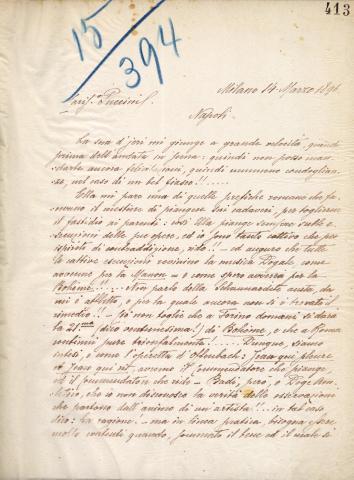 413
15/394
Milano 14 Marzo 1896
Cariss.o Puccini
Napoli.
La sua d'jeri mi giunge a grande velocità, quindi
prima dell'andata in scena: quindi non posso man-
darle ancora felicitazioni, quindi nemmeno condoglian-
ze, nel caso di un bel fiasco!!.....
Ella mi pare una di quelle prefiche romane che fa-
cevano il mestiere di piangere sui cadaveri, per togliere
il fastidio ai parenti: così Ella piange sempre sulle e-
secuzioni delle sue opere, ed io sono tanto cattivo che per
spirito di contraddizione, rido!! — ed auguro che tutte
le cattive esecuzioni rovinino la musica Dogale come
avvenne per la Manon — e come spero avverrà per la
Bohème!!.... Non parlo della Schaunardite acuta, da
cui è affetto, e per la quale ancora non si è trovato il
rimedio!! — Ciò non toglie che a Torino domani si darà
la 21.ma (dico ventunesima!) di Bohème, e che a Roma
continui pure trionfalmente! .... Dunque, siamo
intesi, è come l'operetta d'Offenbach: Jean qui pleure
et Jean qui rit, avremo il Commendatore che piange,
ed il Commendatore che ride — Badi, però, o Doge
mio, che io non disconosco la verità delle osservazioni
che partono dall'animo di un artista!!... in tal caso
dico: ha ragione. — ma in linea pratica, bisogna
contenti quando, sommato il bene ed il male si